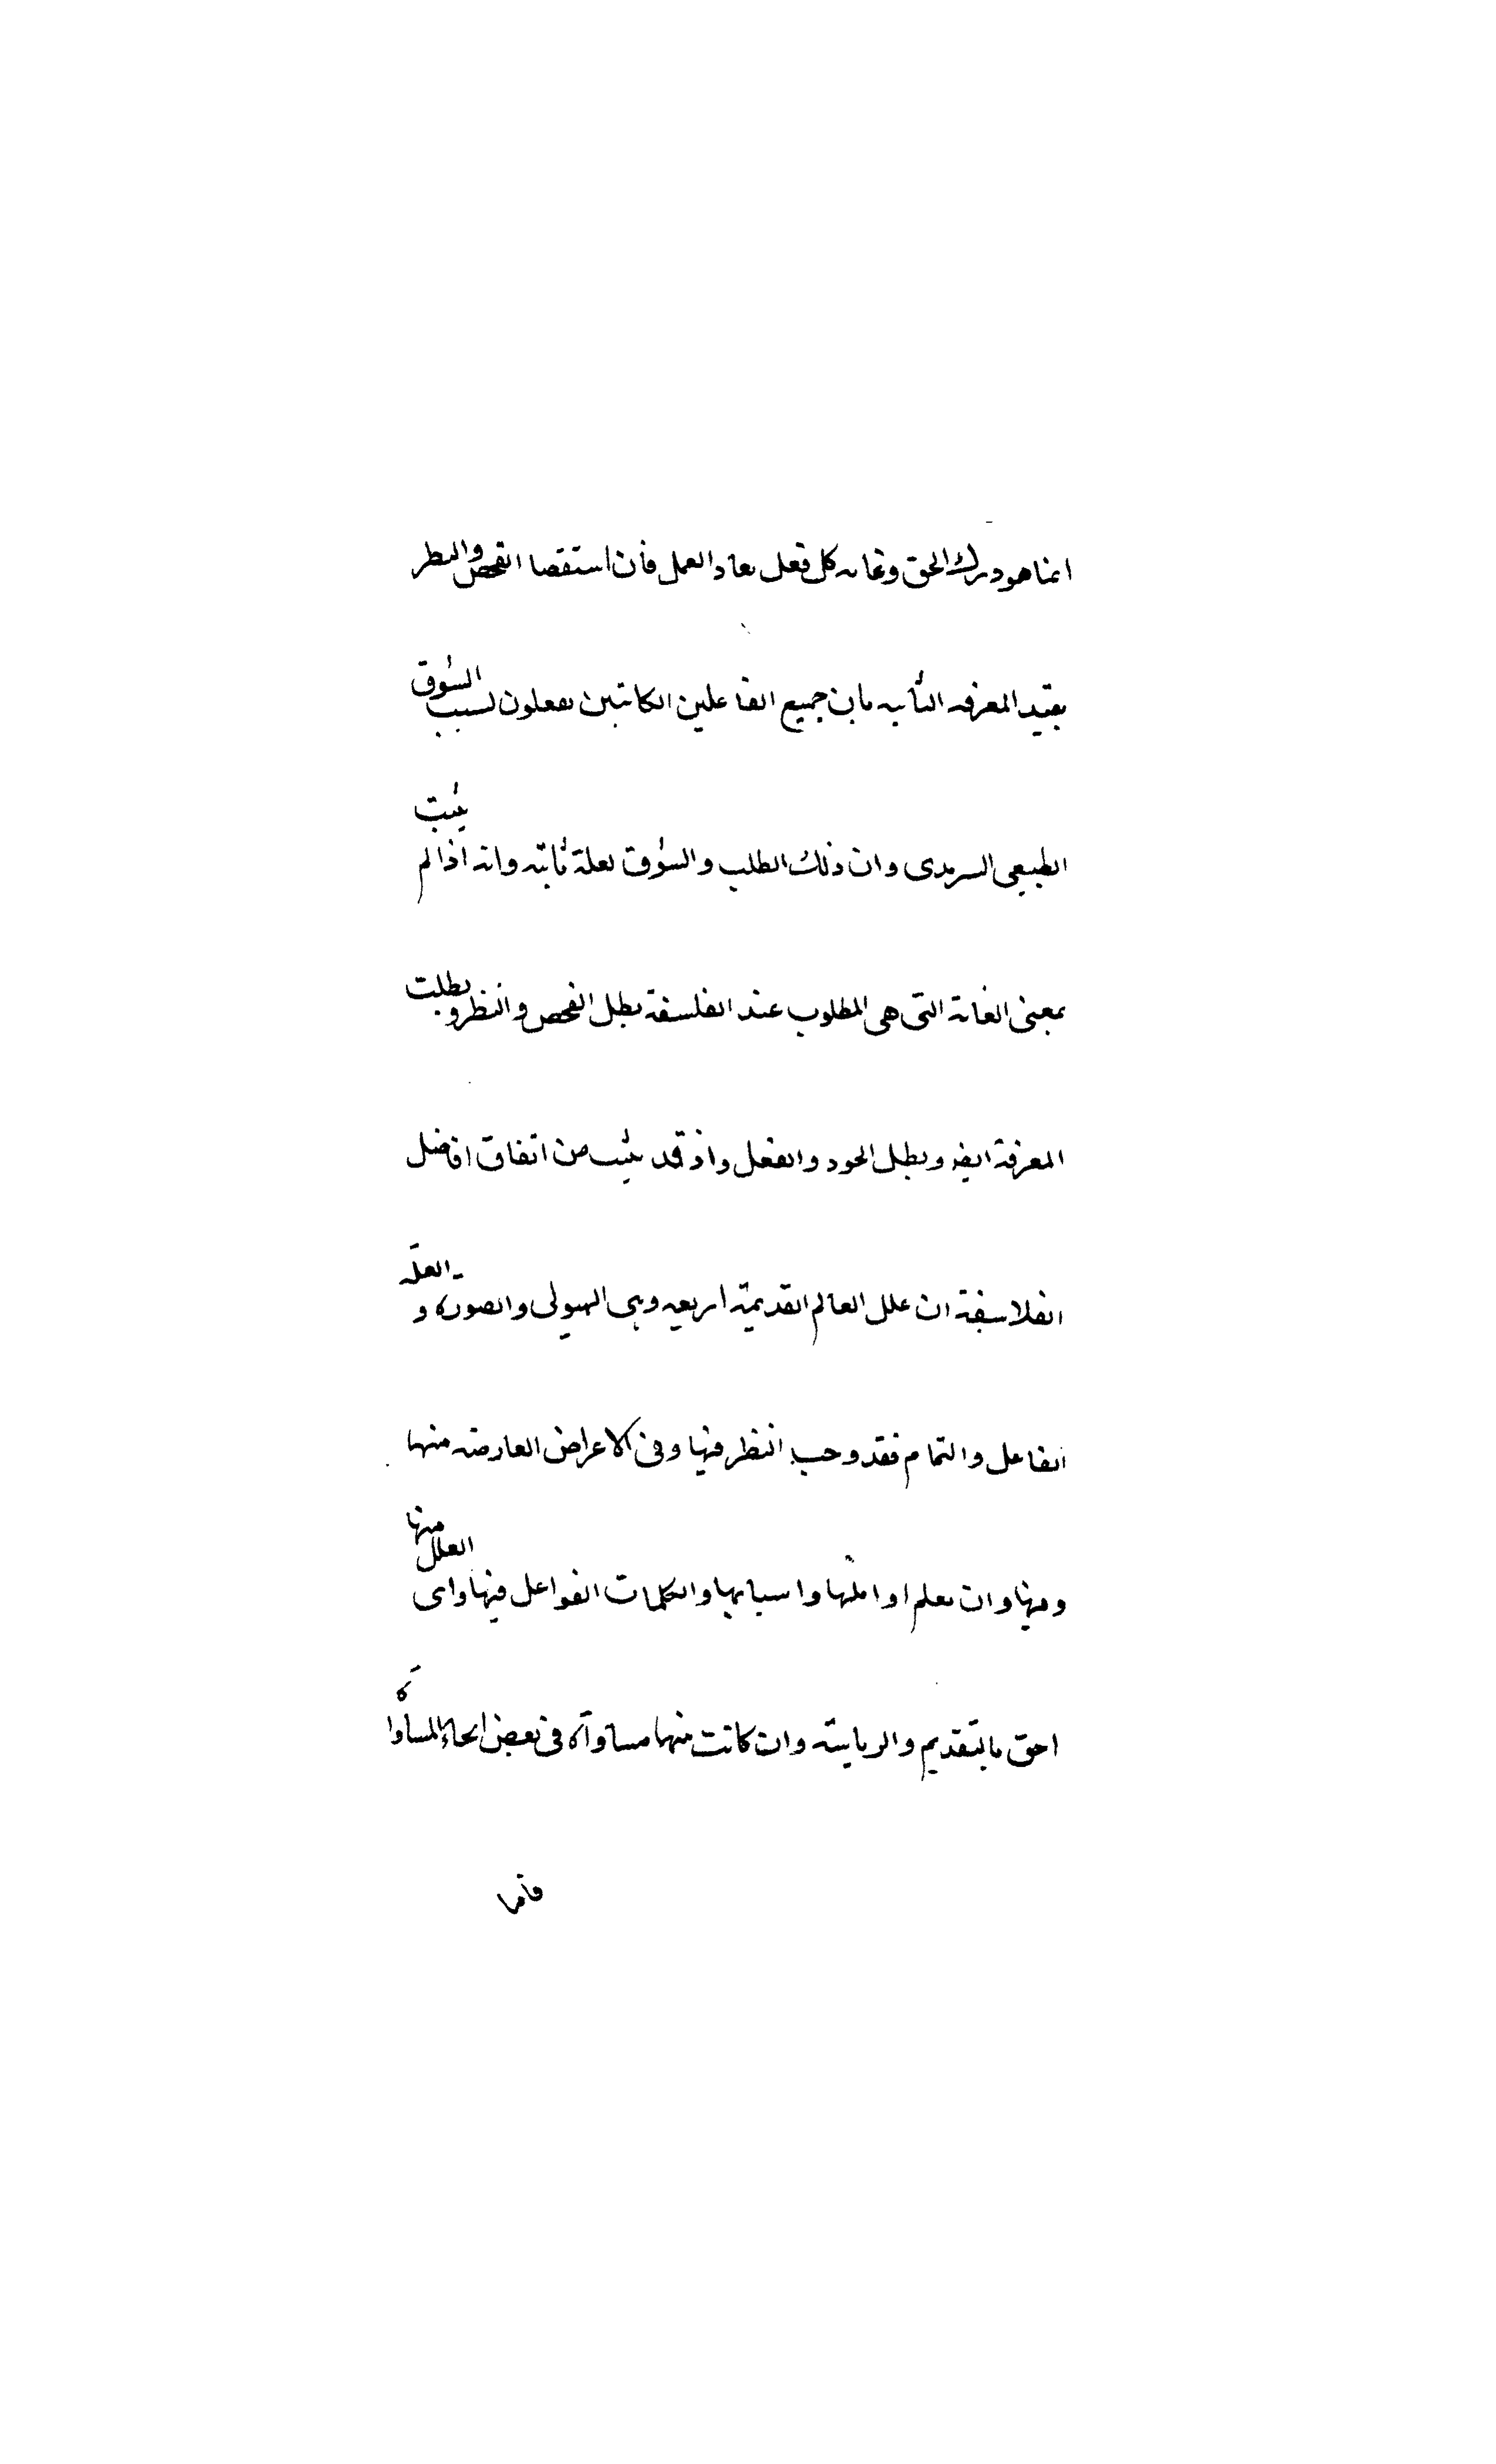 انما هو درك الحق وغايه كل فعل نفاد العمل فان استقصا الفحص والنظر
يفيد المعرفه الثابيه بان جميع الفاعلين الكائنين يفعلون لسبب الشوق
الطبيعى السرمدى وان ذلك الطلب والشوق لعلة ثانيه وانه اذا لم يثبت
بمعنى الغاية التى هى المطلوب عند الفلسفة بطل الفحص والنظر وبطلت
المعرفة ايضه وبطل الجود والفعل واذ قد ثبت من اتفاق افاضل
الفلاسفة ان علل العالم القديمة اربعه وهى الهيولى والصورة و العلة
الفاعل والتمام فقد وجب النظر فيها وفى الاعراض العارضه منها
وفيها وان تعلم اوائلها واسبابها والكلمات الفواعل فيها واى العلل منها
احق بالتقديم والرياسة وان كانت بينها مساواة فى بعض انحاء المساواة
فاما